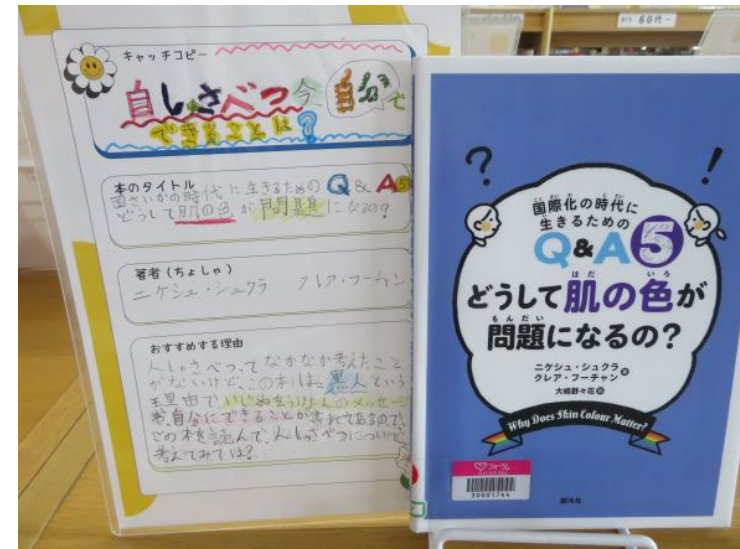 キャッチコピー
自しゅさべつ今自分で
できることは?
本のタイトル
国さいかの時代に生きるための Q&A5
どうして肌の色が問題になるの?
著者(ちょしゃ)
ニケシュ・シュクラ クレア・フーチャン
おすすめする理由
人しゅさべつってなかなか考えたこと
がないけど、この本は、黒人という
理由でいじめをうけた人のメッセー
や、自分にできることが書れてあるので、
この本を読んで、人しゅさべつについて
考えてみては?
60代~
?
!
国際化の時代に
生きるための
Q&A5
どうして肌の色が
問題になるの?
ニケシュ・シュクラ 著
クレア・フーチャン
大嶋野々花 訳
Why Does Skin Colour Matter?
フォーラム
30001744
創元社